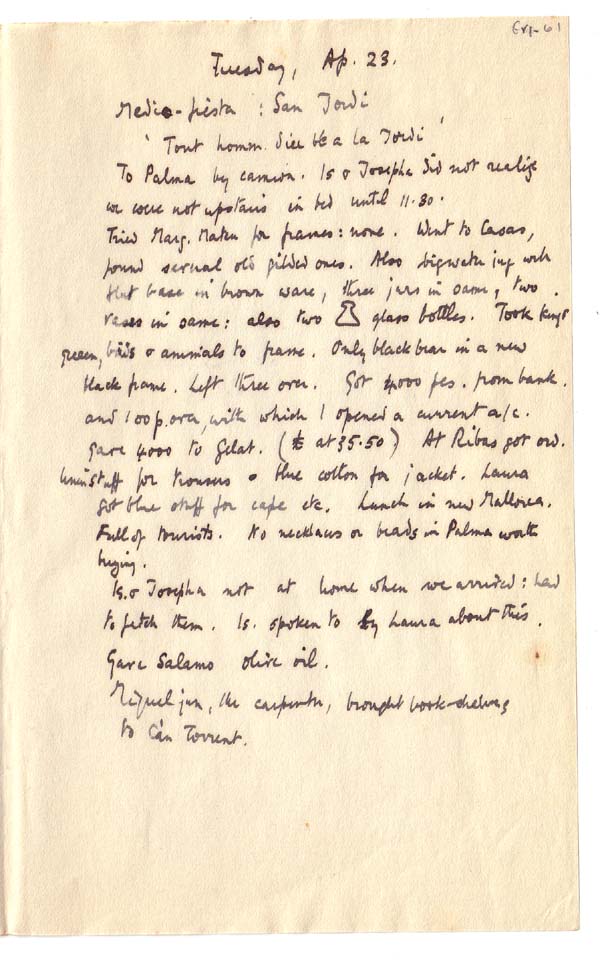 Tuesday, Ap. 23.
Medio-fiesta : San Jordi
' Tout homm. a la Jordi '
To Palma by camion. Is & Josepha did not realize
we were not upstairs in bed until 11.30.
Tried Marg. Mateu for frames: none. Went to Casas,
found several old gilded ones. Also big water jug with
flat base in brown ware, three jars in same, two
vases in same: also two glass bottles. Took king &
queen, birds & animals to frame. Only black bear in a new
black frame. Left three over. Got 4000 pes. from bank.
and 100 p. over, with which I opened a current a/c.
Gave 4000 to Gelat. (£ at 35.50) At Ribas got ord.
linen stuff for trousers & blue cotton for jacket. Laura
got blue stuff for cape etc. Lunch in new Mallorca.
Full of tourists. No necklaces or beads in Palma worth
buying.
Is. & Josepha not at home when we arrived: had
to fetch them. Is. spoken to by Laura about this.
Gave Salamo olive oil.
Miguel jun, the carpenter, brought book-shelves
to C'an Torrent.